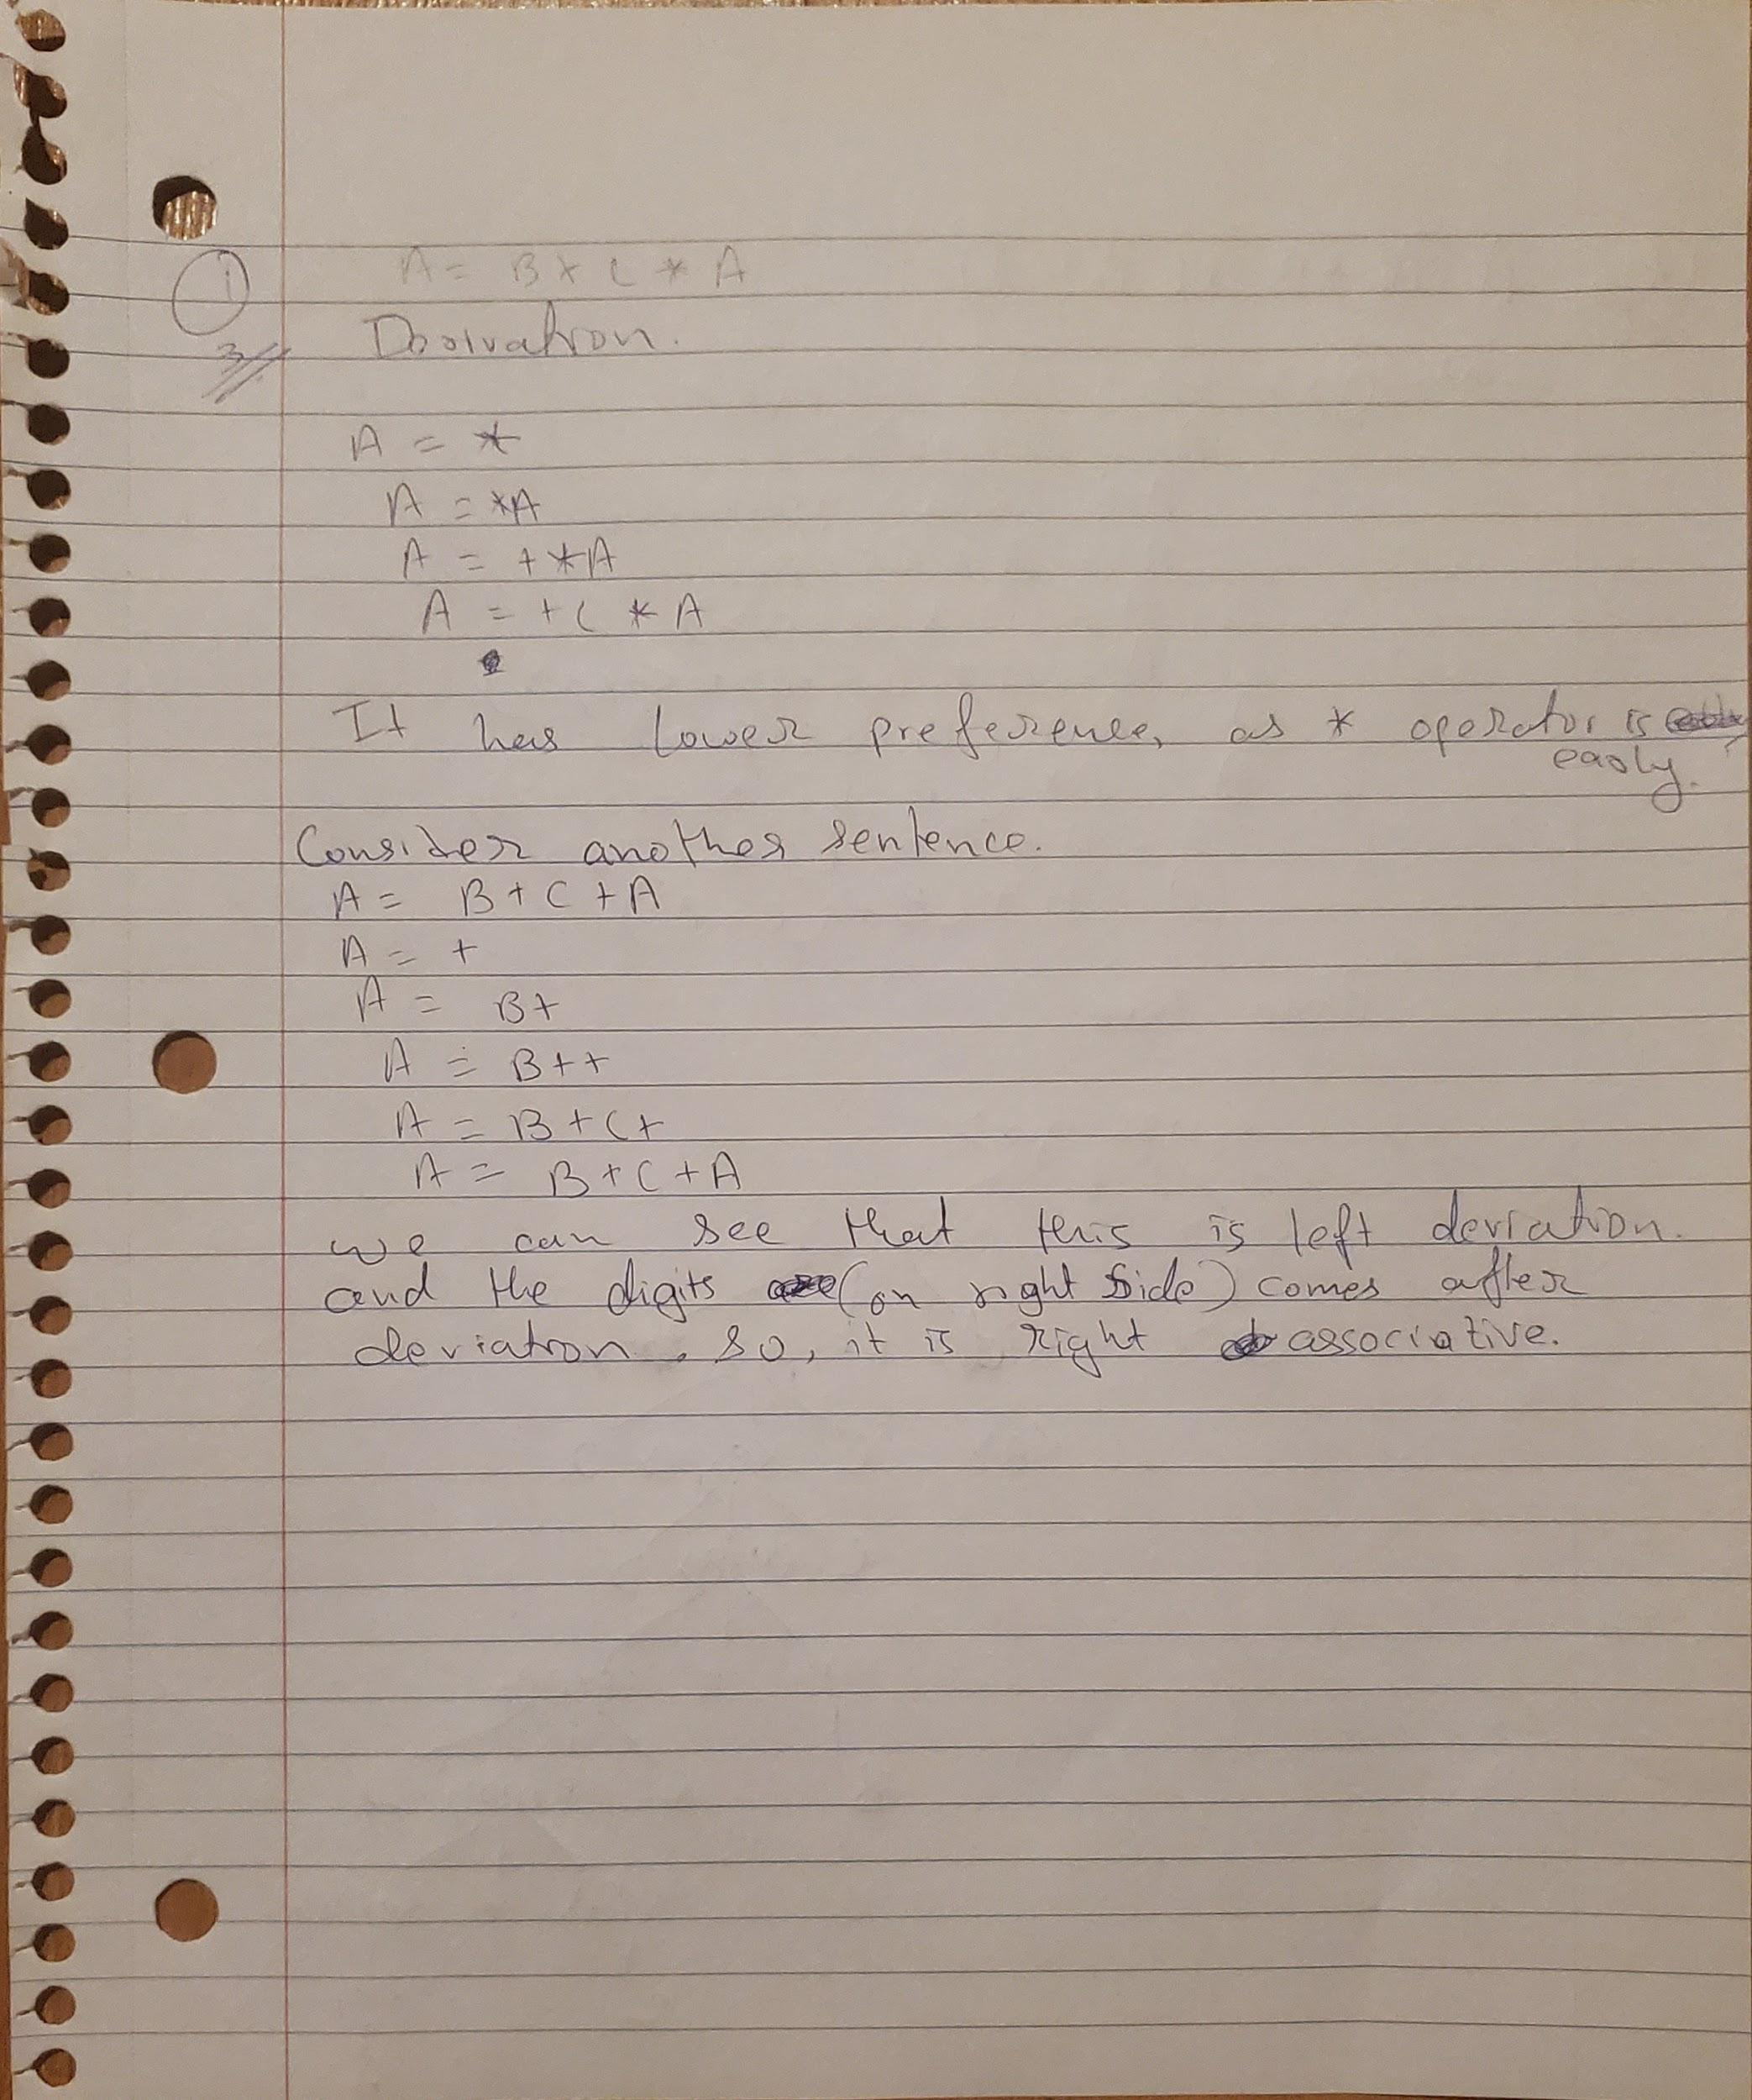 1
A = B + C * A
3
Derivation.
A = *
A = *A
A = + *A
A = + C * A
It has lower preference, as * operator is
early.
Consider another sentence.
A = B + C + A
A = +
A = B+
A = B++
A = B+C+
A = B+C+A
we can see that this is left deviation.
and the digits (on right side) comes after
deviation. so, it is right associative.